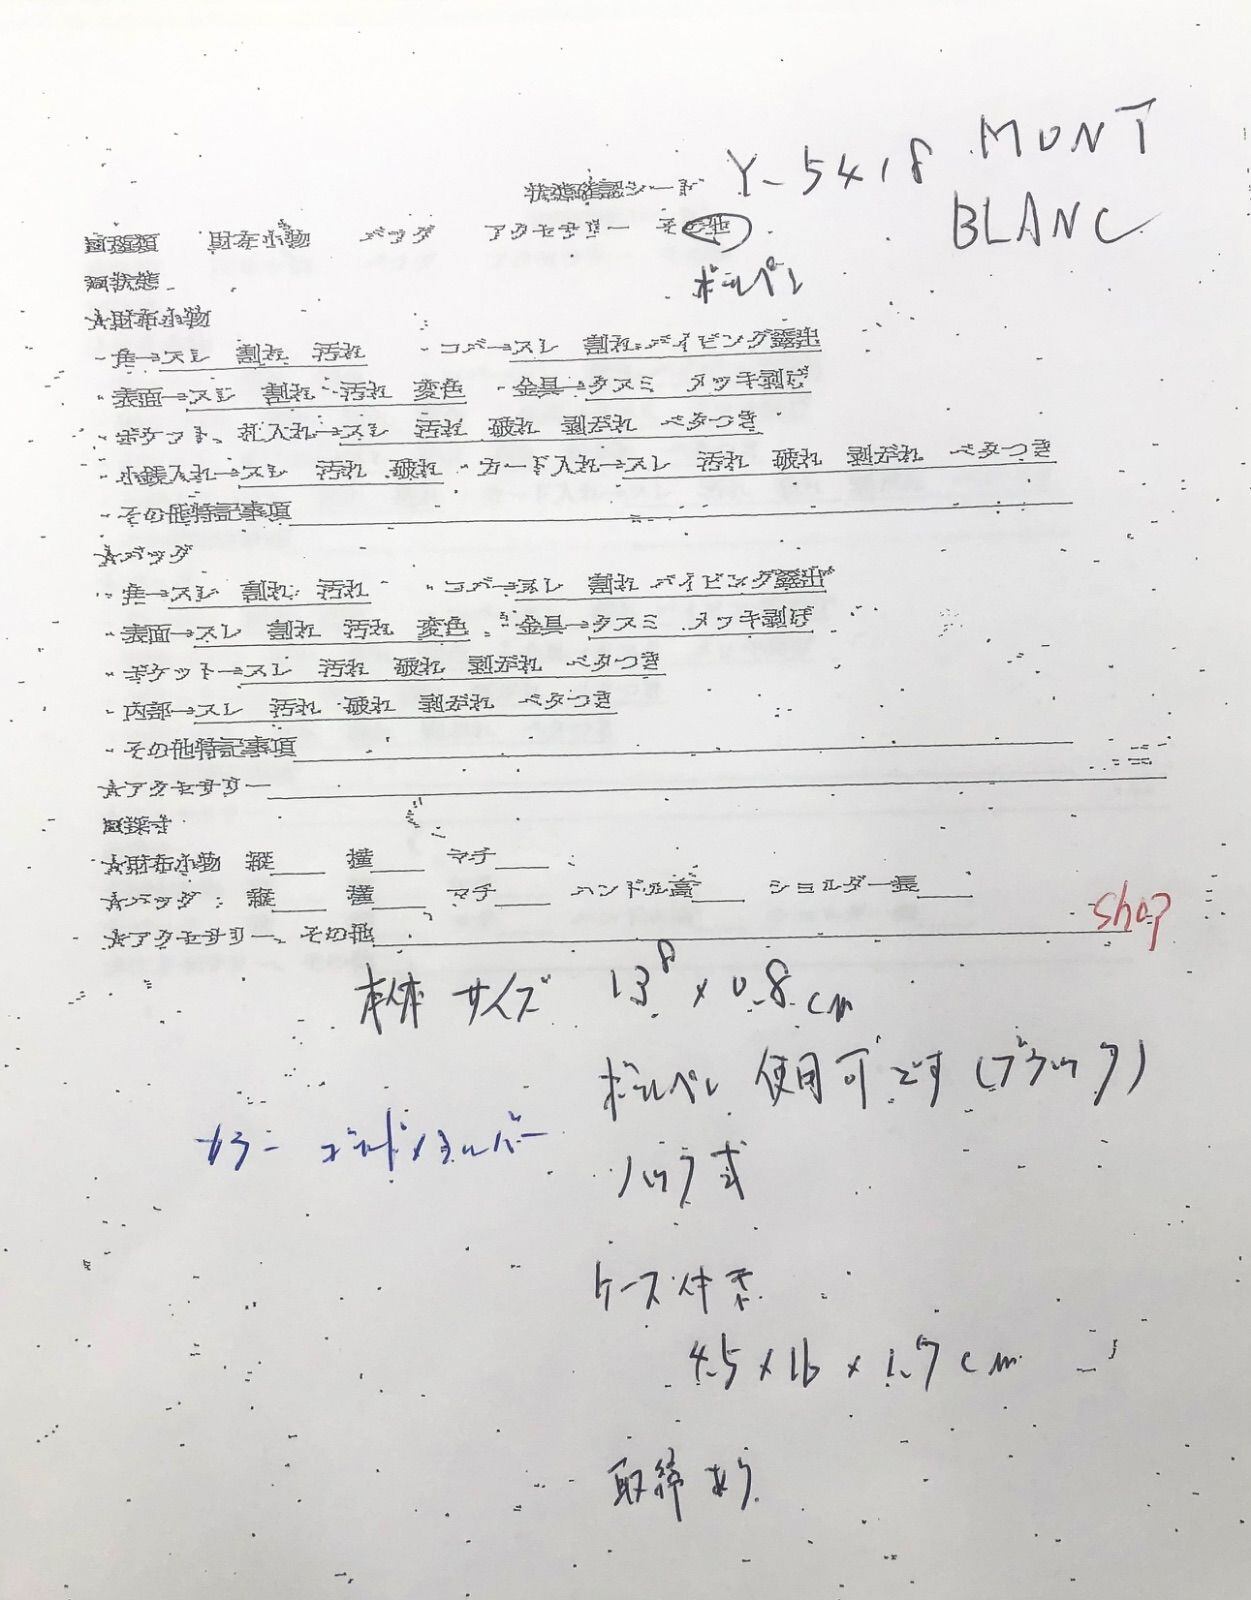 Y-5418 MONT
BLANC
状態確認シート
□種類 財布小物 バッグ アクセサリー その他
ボールペン
□状態
★財布小物
・角→スレ 割れ 汚れ ・コバ→スレ 割れ パイピング露出
・表面→スレ 割れ 汚れ 変色 ・金具→クスミ メッキ剥げ
・ポケット、札入れ→スレ 汚れ 破れ 剥がれ ベタつき
・小銭入れ→スレ 汚れ 破れ ・カード入れ→スレ 汚れ 破れ 剥がれ ベタつき
・その他特記事項
★バッグ
・角→スレ 割れ 汚れ ・コバ→スレ 割れ パイピング露出
・表面→スレ 割れ 汚れ 変色 ・金具→クスミ メッキ剥げ
・ポケット→スレ 汚れ 破れ 剥がれ ベタつき
・内部→スレ 汚れ 破れ 剥がれ ベタつき
・その他特記事項
★アクセサリー
□採寸
★財布小物 縦 横 マチ
★バッグ: 縦 横 マチ ハンドル高 ショルダー長
★アクセサリー、その他
shop
本体サイズ 13.8 x 0.8 cm
ボールペン 使用可です (ブラック)
カラー ゴールド×シルバー
ノック式
ケース付き
4.5 x 16 x 1.7 cm
取 あり